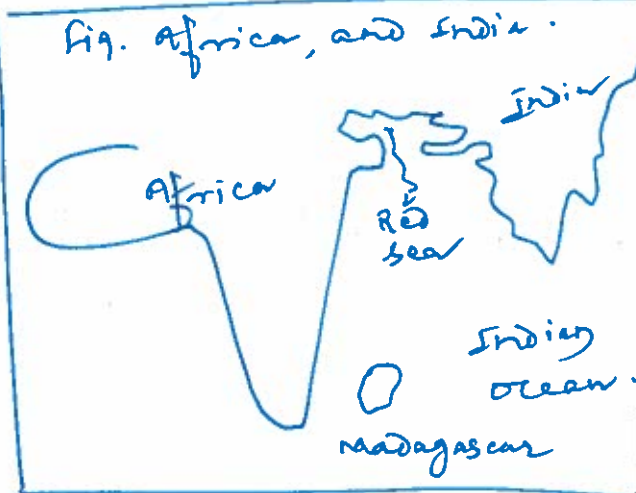 Fig. Africa, and India.
India
Africa
Red
sea
Indian
ocean.
Madagascar